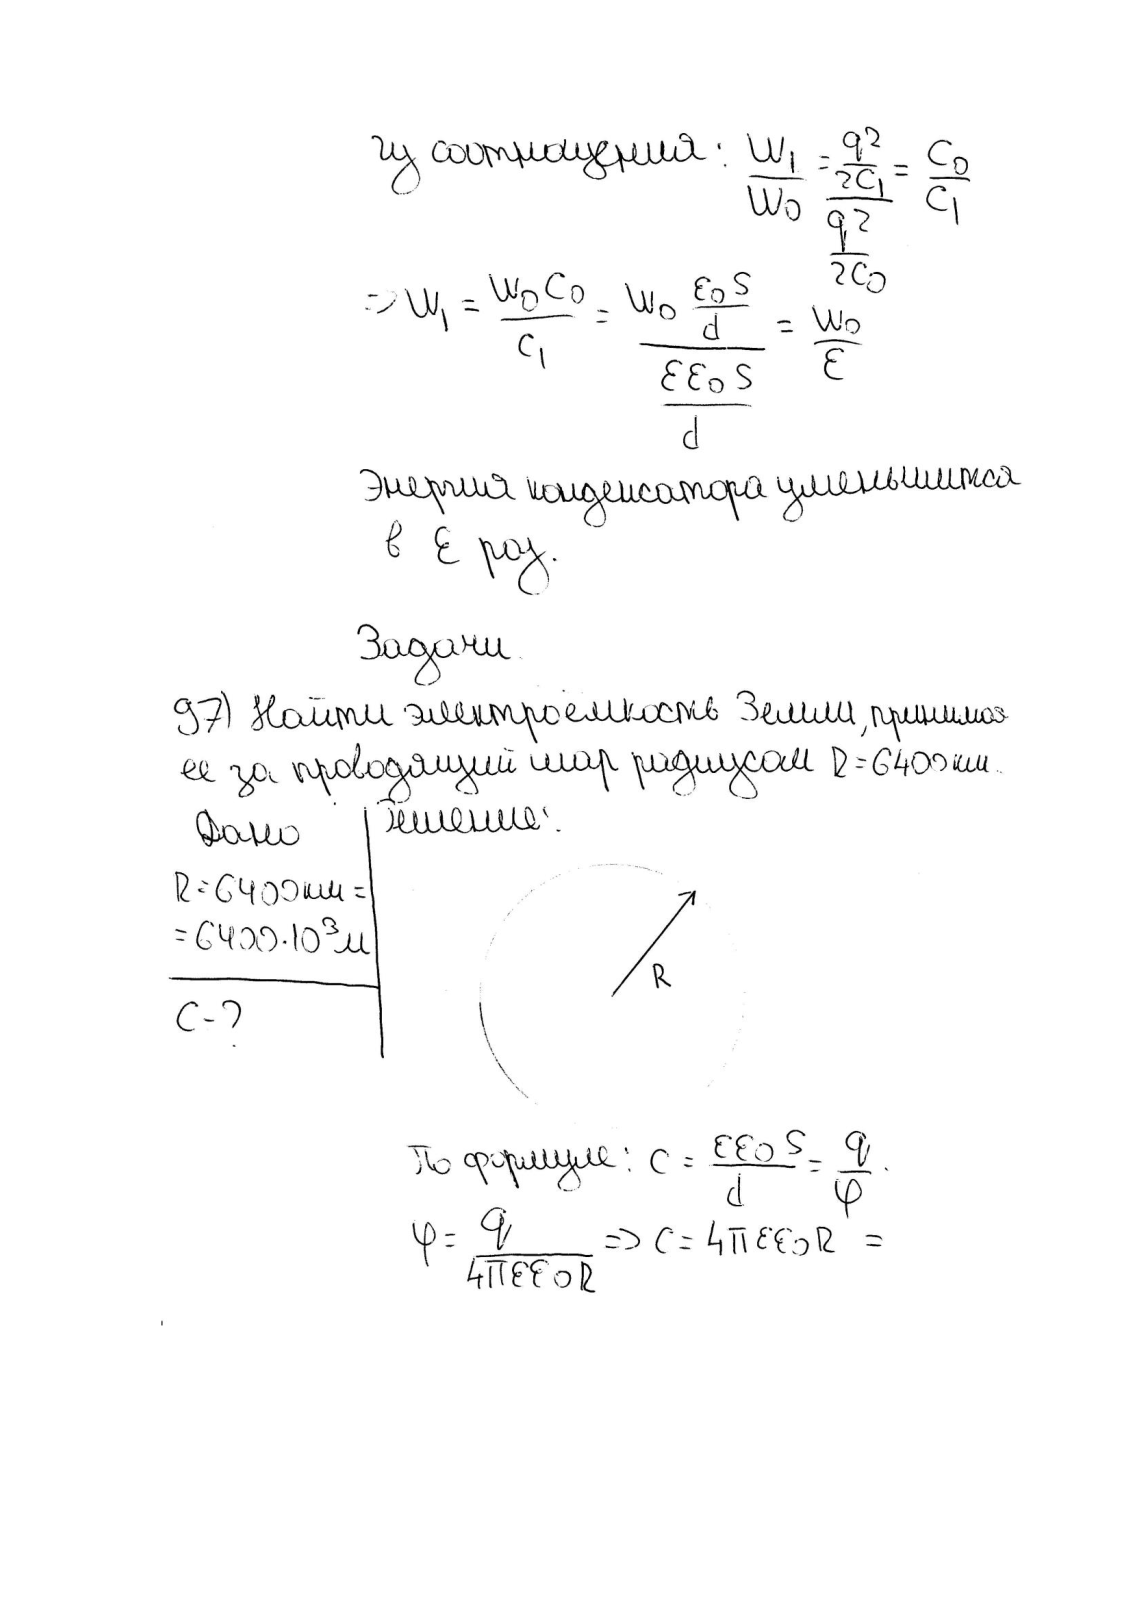 из соотношения: W₁/W₀ = (q²/2C₁)/(q²/2C₀) = C₀/C₁
=> W₁ = W₀C₀/C₁ = (W₀ ε₀S/d)/(εε₀S/d) = W₀/ε
Энергия конденсатора уменьшится
в ε раз.
Задачи
97) Найти электроёмкость Земли, принимая
ее за проводящий шар радиусом R=6400км.
Дано
Решение:
R=6400км=
=6400·10³м
C-?
R
По формуле: C = εε₀S/d = q/φ.
φ = q/4πεε₀R => C = 4πεε₀R =